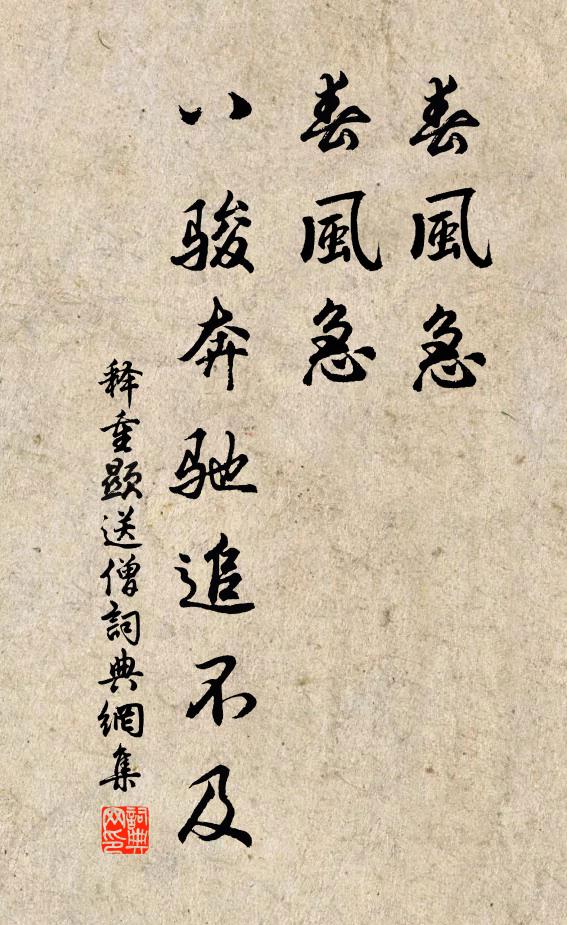 春風急
春風急
八駿奔馳追不及
释重顯送僧詞典網集
詞典
网印